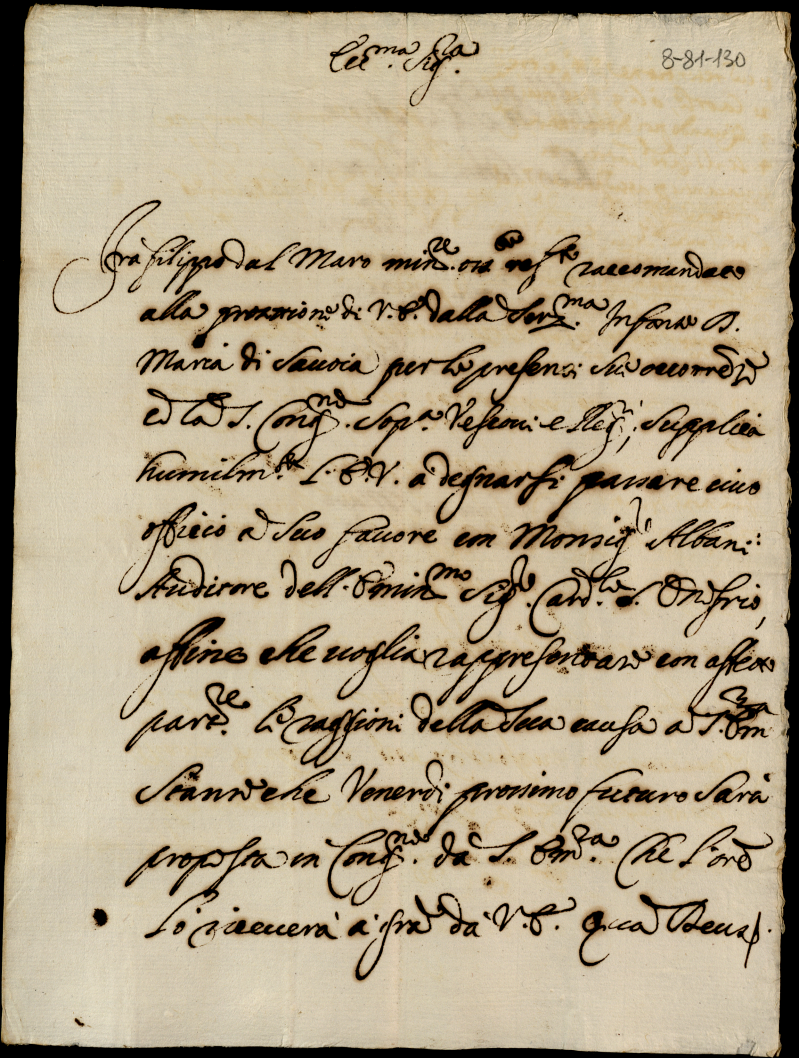 8-81-130
Ecc.ma Sig.ra
Frà Filippo dal Maro min.re oss.te rif.to raccomandato
alla protettione di V. E. dalla Ser.ma Infante D.
Maria di Sauoia per le presenti sue occorrẽze
ed la S. Cong.ne sop.a Vescoui e Reg.ri, supplica
humilm.te L'E. V. à degnarsi passare uiuo
officio à suo fauore con Monsig.r Albani:
Auditore dell'Emin.mo Sig.re Card.le S. Onofrio,
affine che uoglia rappresentare con affetto
part.re le raggioni della sua causa a S. Em.za
stante che Venerdi prossimo futuro sarà
proposta in Cong.ne da S. Em.za Che l'ore
lo riceuerà à gra da V. E. Qua Deus